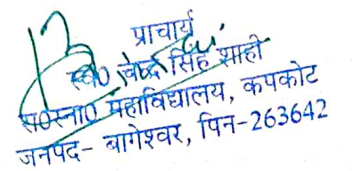 प्राचार्य
स्व० चन्द्र सिंह शाही
रा०स्ना० महाविद्यालय, कपकोट
जनपद- बागेश्वर, पिन-263642